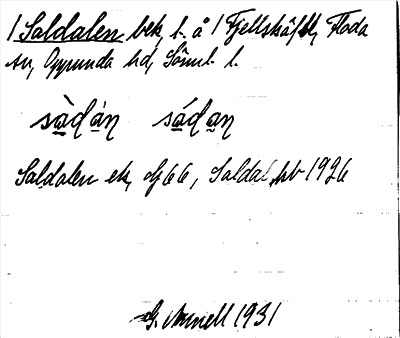 / Saldalen bek, l. å / Fjellskäftt, Floda
sn, Oppunda hd, Söml. l.
sàdán sádan
Saldalen ek, dj 66, Saldal, hb 1926
G. Annell 1931